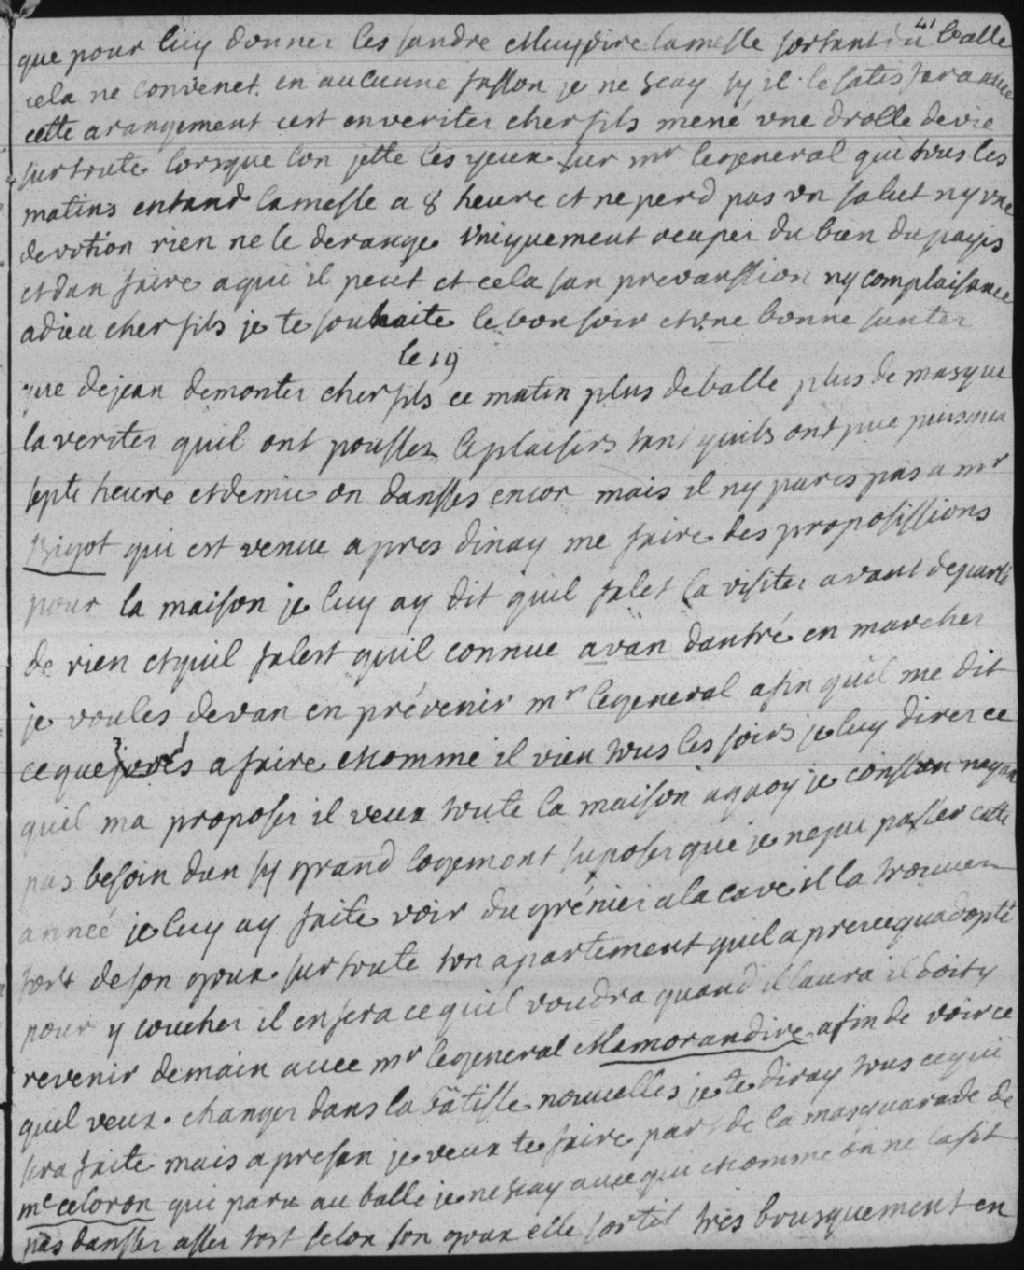 41
que pour luy donner les sandre et luy dire la messe sortant du balle
cela ne convenet en aucunne fasson je ne scay sy il le fates fera avec
cette arangement cest en veriter cher fils mené vne drolle de vie
sur toute lorsque lon jette les yeux sur mr legeneral qui tous les
matins entand la messe a 8 heure et ne perd pas vn salut ny vne
devotion rien ne le derange vniquement ocuper du bien du pays
et dan faire a qui il peut et cela san prevanssion ny complaisance
adieu cher fils je te souhaite le bonsoir et vne bonne santer
le 19
que dejean demonter cher fils ce matin plus de balle plus de masque
la veriter quil ont poussez le plaisirs tant quils ont pue puisqua
septe heure et demie on dansses encor mais il ny pares pas a mr
Bigot qui est venue apres dinay me faire des propositions
pour la maison je luy ay dit quil falet la visiter avant de parle
de rien et quil falest quil connue avan dantré en marcher
je voules devan en prévenir mr legeneral afin quil me dit
ce que javes a faire et comme il vien tous les soirs je luy direr ce
quil ma proposer il veux toute la maison a quoy je conssan nayan
pas besoin dun sy grand logement suposer que je ne peu passer cette
année je luy ay faite voir du grénier a la cave il la trouver
fort de son goux sur toute ton apartement quel a presque adopté
pour y coucher il en fera ce quil voudra quand il laura il doit y
revenir demain avec mr legeneral et Lamorandire afin de voir ce
quil veux changer dans la bâtisse nouvelles je te diray tous ce qui
sera faite mais apresan je veux te faire part de la masquarade de
me celoron qui paru au balle je ne scay avec qui et comme on ne la fit
pas dansser asser tost selon son goux elle sortit très brusquement en